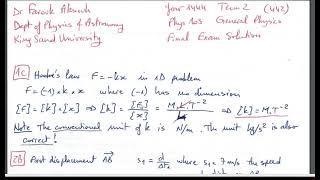 Dr Farouk
Dept of Physics & Astronomy
King Saud University
Year 1444 Term 2 (442)
Phys 103 General Physics
Final Exam Solution
1C Hooke's law F = -kx in 1D problem
F = (-1) * k * x where (-1) has no dimension
[F] = [k] * [x] ⇒ [k] = [F] / [x] = M.L.T⁻² / L ⇒ [k] = M.T⁻²
Note The conventional unit of k is N/m. The unit kg/s² is also
correct!
2B First displacement AB S₁ = d / Δt₁ where S₁ = 7 m/s the speed